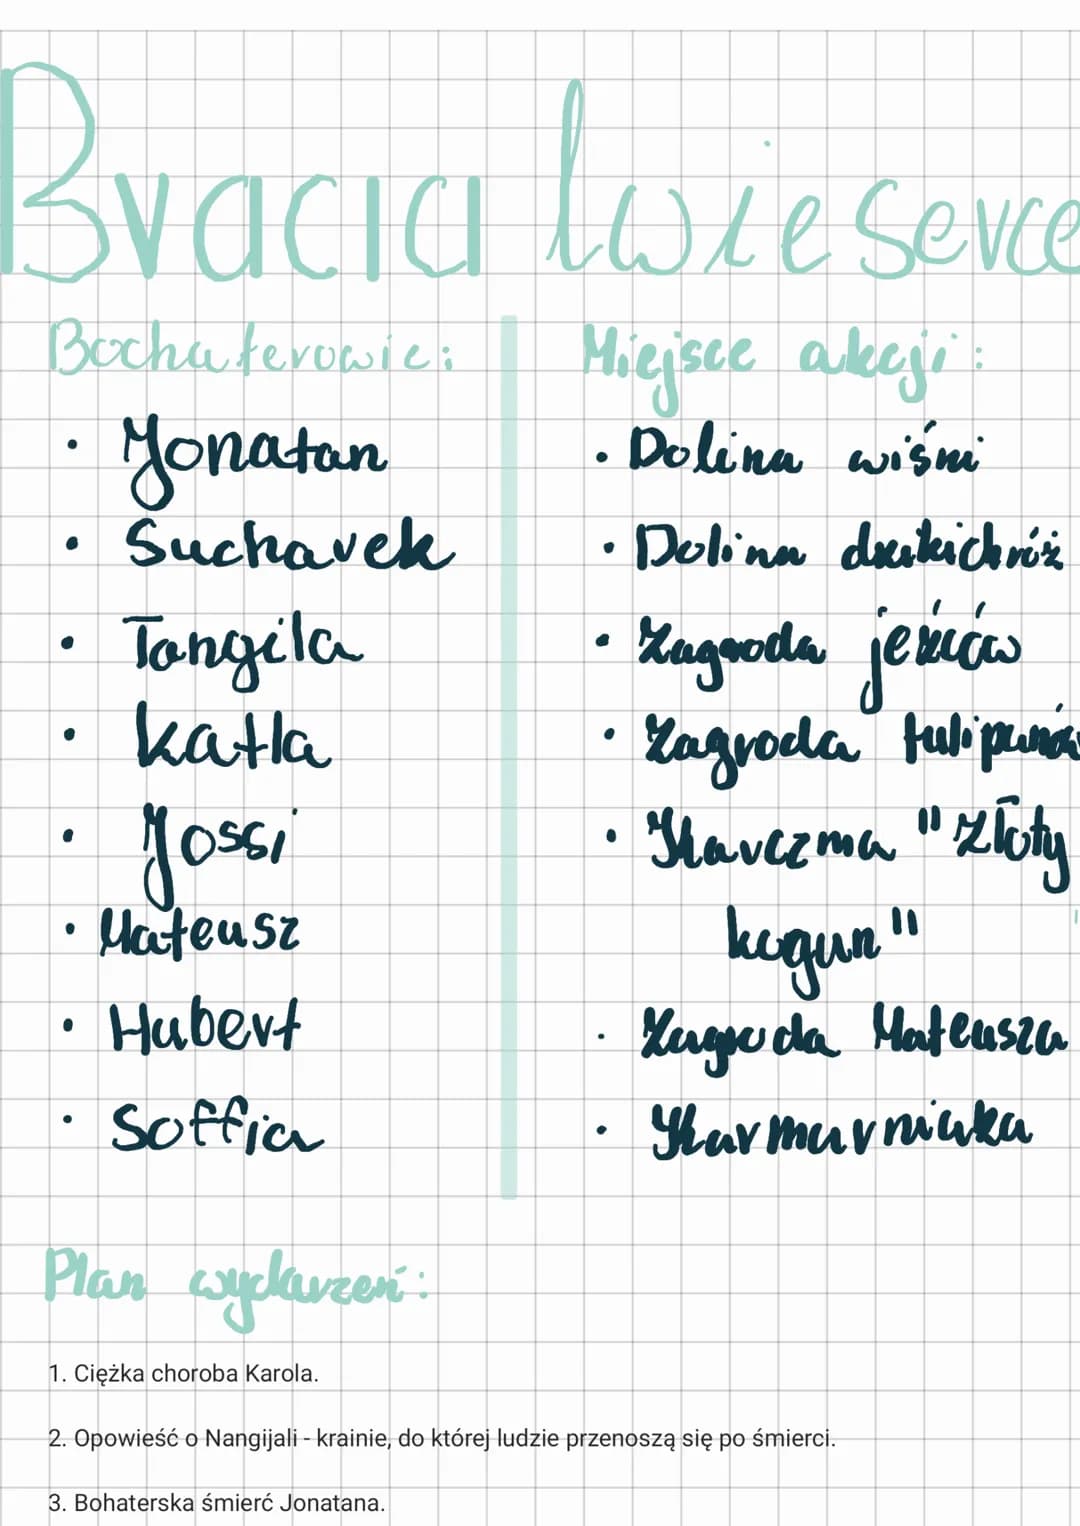 Bracia lwie serce
Bochaterowie:
• Jonatan
• Sucharek
• Tengila
• Katla
• Jossi
• Mateusz
• Hubert
• Soffia
Miejsce akcji:
• Dolina wiśni
• Dolina dzikich róż
• Zagroda jeźców
• Zagroda tulipanów
• Karczma "Złoty
kogun"
• Zagroda Mateusza
• Karmarniaka
Plan wydarzeń:
1. Ciężka choroba Karola.
2. Opowieść o Nangijali - krainie, do której ludzie przenoszą się po śmierci.
3. Bohaterska śmierć Jonatana.